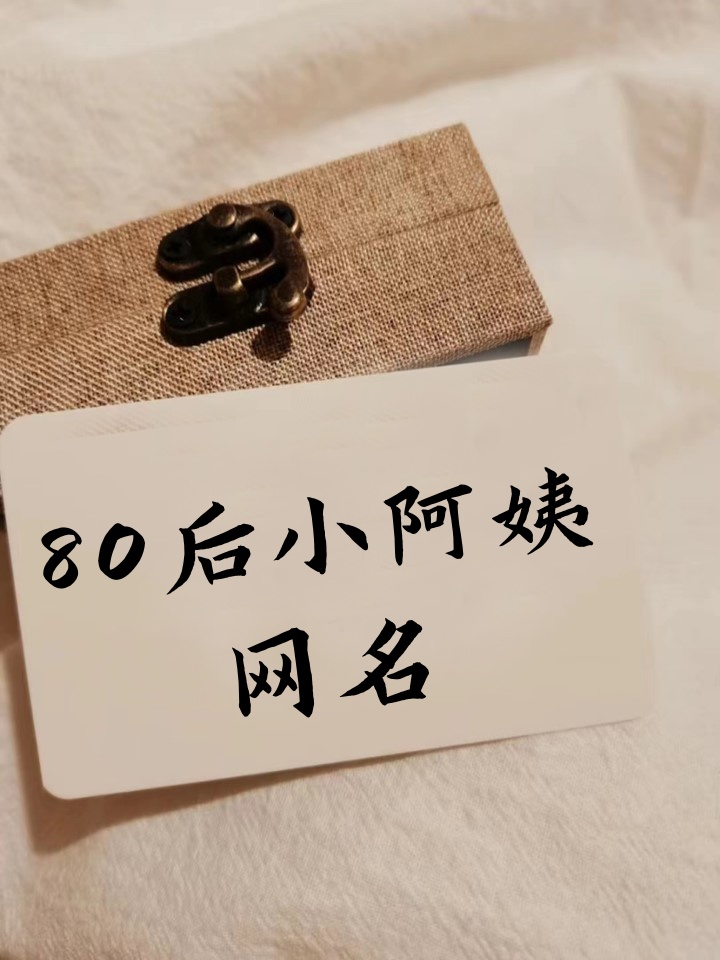 80后小阿姨
网名